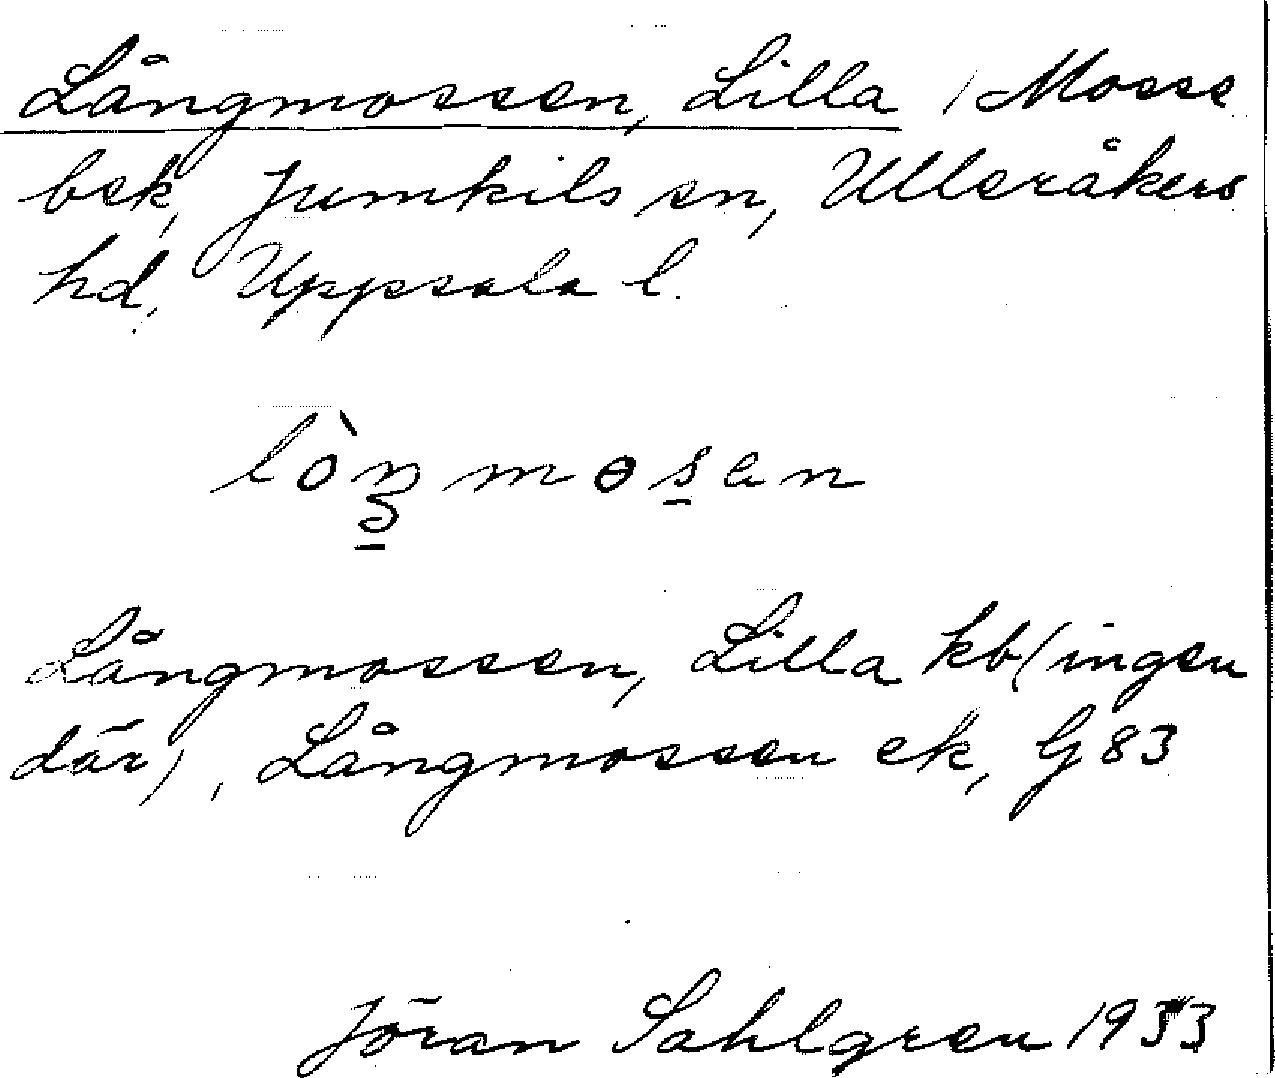 Långmossen, Lilla / Mosse
bek, Jumkils sn, Ulleråkers
hd, Uppsala l.
Långmossen, Lilla kb (ingen
där), Långmossen ek, G 83
Jöran Sahlgren 1933